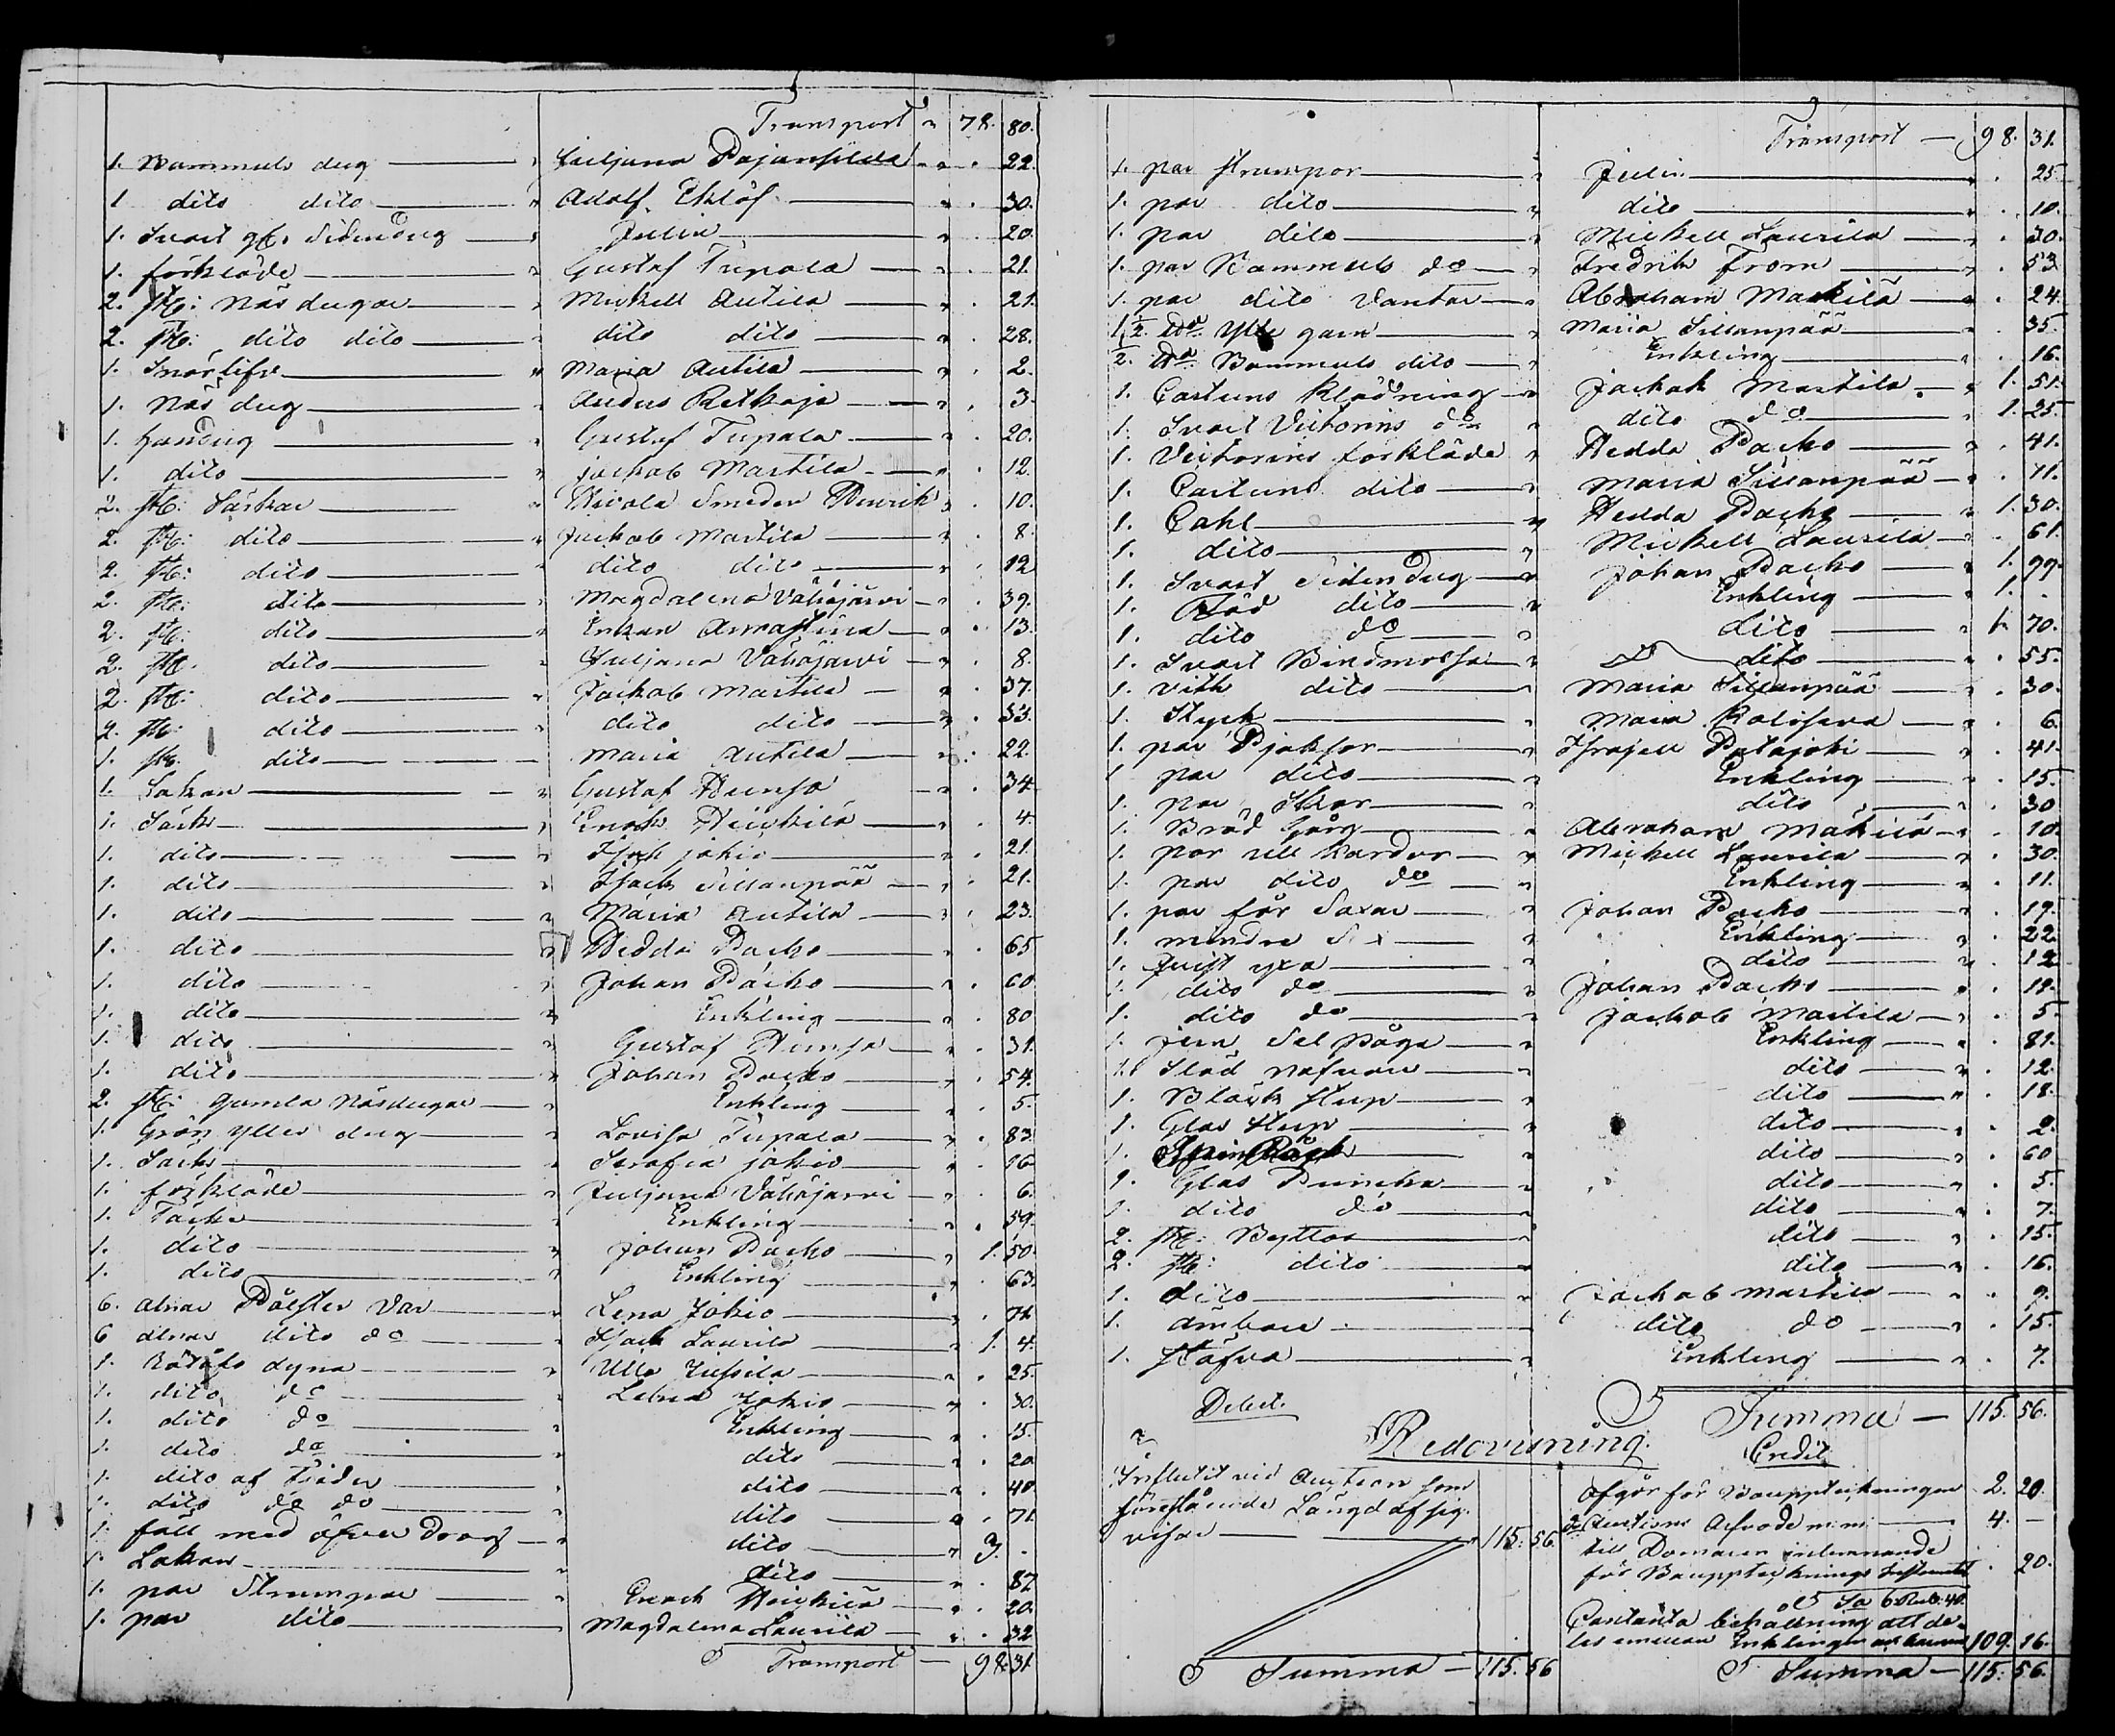 Transport " 78. 80.
1. Bommuls dug " Juljana Pajunsilda " . 22.
1 dito dito " Adolf Eklöf " . 30.
1. Svart gl: Sidendug " Julin " . 20.
1. förkläde " Gustaf Tupala " . 21.
2. st: Näsdugar " Mickell Antila " . 21.
2. st: dito dito " dito dito " . 28.
1. Snörlifv " Maria Antila " . 2.
1. Näs dug " Andus Ratkaja " . 3.
1. handug " Gustaf Tupala " . 20.
1. dito " Jackob Martila " . 12.
2. st: Särkar " Nicola Smeden Henrik " . 10.
2. st: dito " Jackob Martila " . 8.
2. st: dito " dito dito " . 12
2. st: dito " Magdalena Vähäjärvi " . 39.
2. st: dito " Enkan Annastina " . 13.
2. st: dito " Juljana Vähäjärvi " . 8.
2. st: dito " Jackob Martila " . 37.
2. st: dito " dito dito " . 53.
1. st: dito " Maria Antila " . 22.
1. Lakan " Gustaf Hunsa " . 34
1. Särk " Enok Heickilä " . 4.
1. dito " Isak jokio " . 21.
1. dito " Isack Sillanpää " . 21.
1. dito " Maria Antila " . 23.
1. dito " Hedda Backo " . 65
1. dito " Johan Backo " . 60
1. dito " Enkling " . 80
1. dito " Gustaf Hunsa " . 31.
1. dito " Johan Backo " . 54.
2. st: gamla Näsdugar " Enkling " . 5.
1. Grön ylle dug " Lovisa Tupala " . 83.
1. Särk " Serafia jokio " . 16
1. förkläde " Juljana Vähäjärvi " . 6.
1. Täcke " Enkling " . 59.
1. dito " Johan Backo " 1. 50.
1. dito " Enkling " . 63.
6. alnar Bolster Var " Lena Jokio " . 71.
6 alnar dito do " Isack Laurila " 1. 4.
1. dyna " Ulla Jussila " . 25.
1. dito do " Lena Jokio " . 30.
1. dito do " Enkling " . 15.
1. dito do " dito " . 20
1. dito af Fjäder " dito " . 40.
1. dito do do " dito " . 71.
1. fäll med öfver drag " dito " 3. .
1. Lakan " dito " . 87
1. par Strumpor " Enock Heickilä " . 20.
1. par dito " Magdalena Laurila " . 32
Transport — 98. 31.
Transport — 98. 31.
1. par strumpor " Julin " . 25
1. par dito " dito " . 10.
1. par dito " Mickell Laurila " . 20.
1. par Bommuls do " Fredrik From " . 53
1. par dito Vantar " Abraham Mackilä " . 24.
1½ Ylle garn " Maria Sillanpää " . 35.
½ Bommuls dito " Enkling " . 16.
1. Cartuns Klädning " Jackob Martila " 1. 51.
1. Svart Victorins do " dito do " 1. 25.
1. Victorins förkläde " Hedda Backo " . 41.
1. Cartuns dito " Maria Sillanpää " . 11.
1. Cahl " Hedda Backo " 1. 30.
1. dito " Mickell Laurila " . 61.
1. Svart Sidendug " Johan Backo " 1. 99.
1. Röd dito " Enkling " 1. .
1. dito do " dito " 1. 70.
1. Svart Bindmössa " dito " . 55.
1. vitt dito " Maria Sillanpää " . 30.
1. Styck " Maria " . 6.
1. par Pjäksor " Israjell Patajoki " . 41.
1 par dito " Enkling " . 15.
1. par Skor " dito " . 30
1. Bröd " Abraham Mäkilä " . 10.
1. par ull kardor " Mickell Laurila " . 30.
1. par dito do " Enkling " . 11.
1. par får Saxar " Johan Backo " . 19.
1. mindre " Enkling " . 22.
1. yxa " dito " . 12
1. dito do " Johan Backo " . 12.
1. dito do " Jackob Martila " . 5.
1. " Enkling " . 81.
1. Slad nafvare " dito " . 12.
1. Bläck stup " dito " . 18.
1. Glas stup " dito " . 2.
1. Spin Råck " dito " . 60
1. Glas Puncka " dito " . 5.
1. dito do " dito " . 7.
2. st: Byttor " dito " . 15.
2. st: dito " dito " . 16.
1. dito " Jackob Martila " . 9.
1. ämbare " dito do " . 15.
1. Stäfva " Enkling " . 7.
Summa — 115. 56.
Debet. Redovisning. Credit.
Influtit vid Auction som
förestående Längd af sig.
visar 115. 56.
Afgår för Bouppteckningen 2. 20.
do Auctions Arvode m.m. 4. —
till Domaren inlemnande
för BouppteckningsInstrumentet . 20.
Sa 6 Rub. 40.
Contanta behållning att de-
les emellan Enklingen 109. 16.
Summa — 115. 56
Summa — 115. 56.